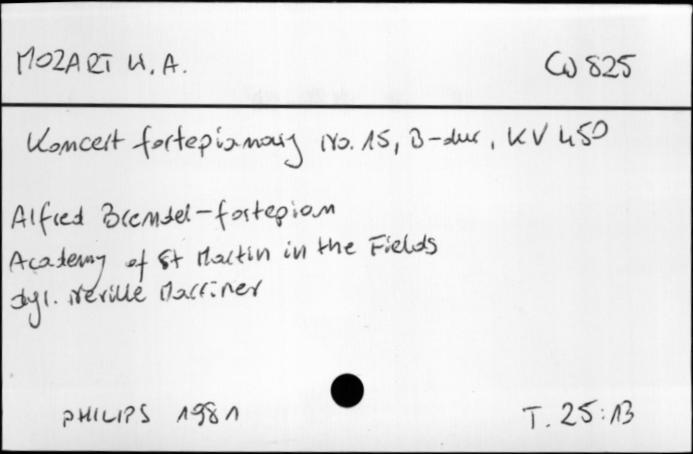 MOZART W. A. CD 825
Koncert fortepianowy No. 15, B-dur, KV 450
Alfred Brendel - fortepian
Academy of St Martin in the Fields
dyr. Neville Marriner
PHILIPS 1981 T. 25:13